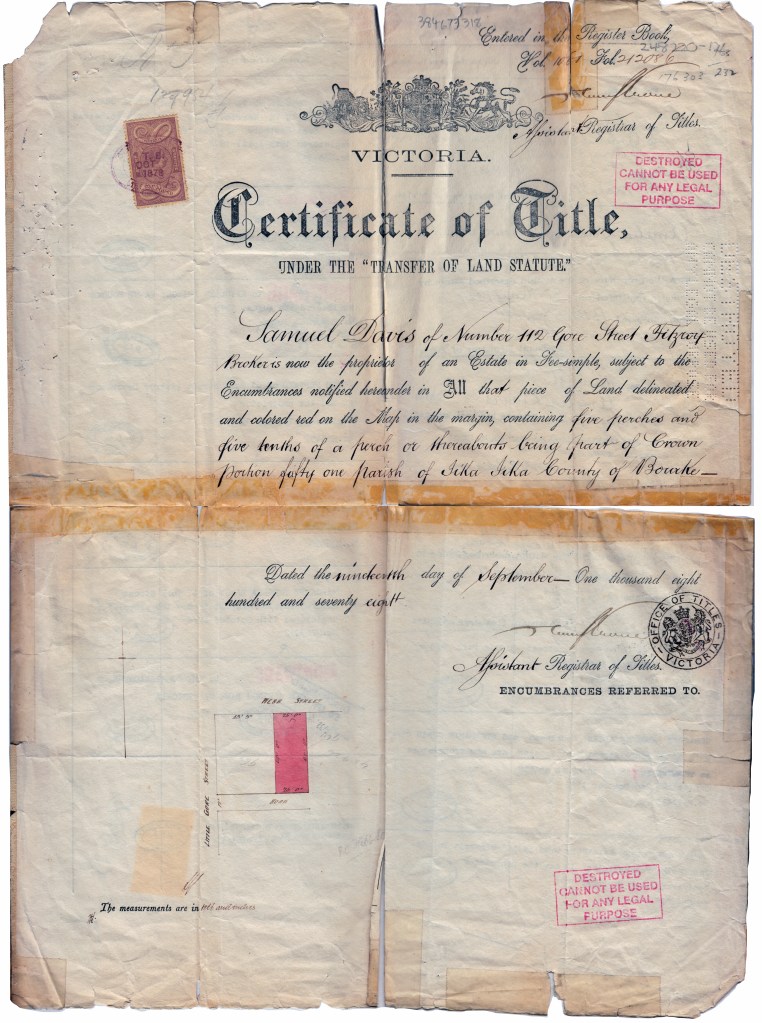 384673318
Entered in the Register Book,
Vol. 1061 Fol. 212086
Assistant Registrar of Titles.
VICTORIA.
DESTROYED
CANNOT BE USED
FOR ANY LEGAL
PURPOSE
Certificate of Title,
UNDER THE "TRANSFER OF LAND STATUTE."
Samuel Davis of Number 112 Gore Street Fitzroy
Broker is now the proprietor of an Estate in Fee-simple, subject to the
Encumbrances notified hereunder in All that piece of Land delineated
and colored red on the Map in the margin, containing five perches and
five tenths of a perch or thereabouts being part of Crown
Portion fifty one parish of Jika Jika County of Bourke—
Dated the nineteenth day of September— One thousand eight
hundred and seventy eight
OFFICE OF TITLES
VICTORIA
Assistant Registrar of Titles.
ENCUMBRANCES REFERRED TO.
STREET
LITTLE GORE STREET
ROAD
DESTROYED
CANNOT BE USED
FOR ANY LEGAL
PURPOSE
The measurements are in feet and inches